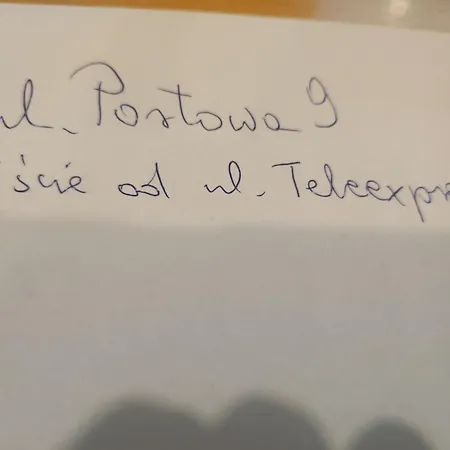 ul. Portowa 9
iście od ul. Teleexpr